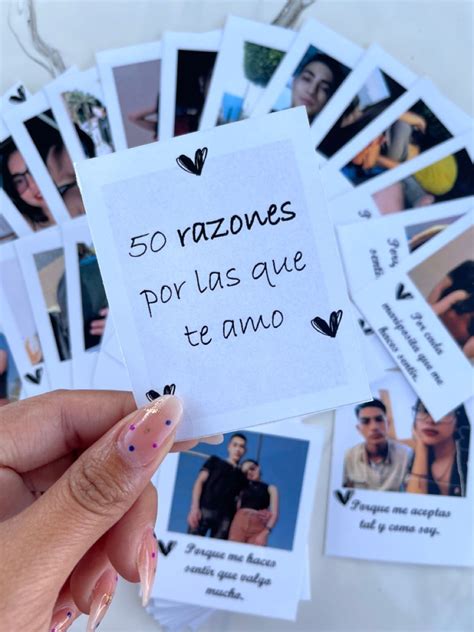 50 razones
por las que
te amo
Por cada
mariposita que me
haces sentir.
Porque me aceptas
tal y como soy.
Porque me haces
sentir que valgo
mucho.